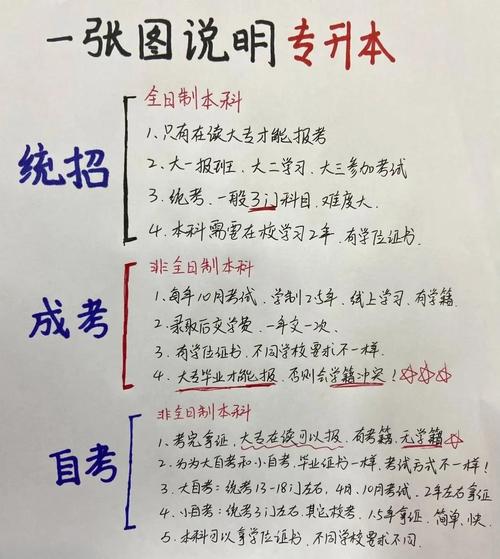 一张图说明专升本
统招
全日制本科
1、只有在读大专才能报考
2、大一报班、大二学习、大三参加考试
3、统考、一般3门科目、难度大.
4、本科需要在校学习2年、有学位证书.
成考
非全日制本科
1、每年10月考试、学制2.5年、线上学习、有学籍
2、录取后交学费、一年交一次、
3、有学位证书、不同学校要求不一样.
4、大专毕业才能报、否则会学籍冲突!☆☆☆
自考
非全日制本科
1、考完拿证、大专在读可以报、有考籍、无学籍☆
2、分为大自考和小自考、毕业证书一样、考试方式不一样!
3、大自考:统考13-18门左右、4月、10月考试、2年左右拿证
4、小自考:统考3门左右、其它校考、1.5年拿证、简单、快.
5、本科可以拿学位证书、不同学校要求不同.